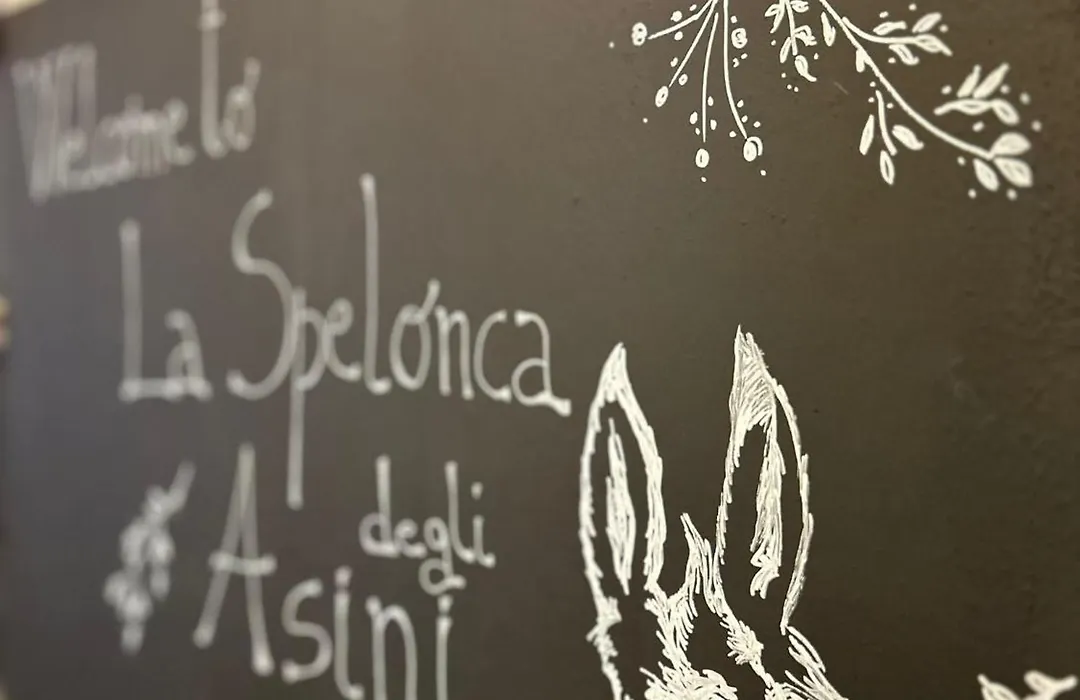 Welcome to
La Spelonca
degli
Asini